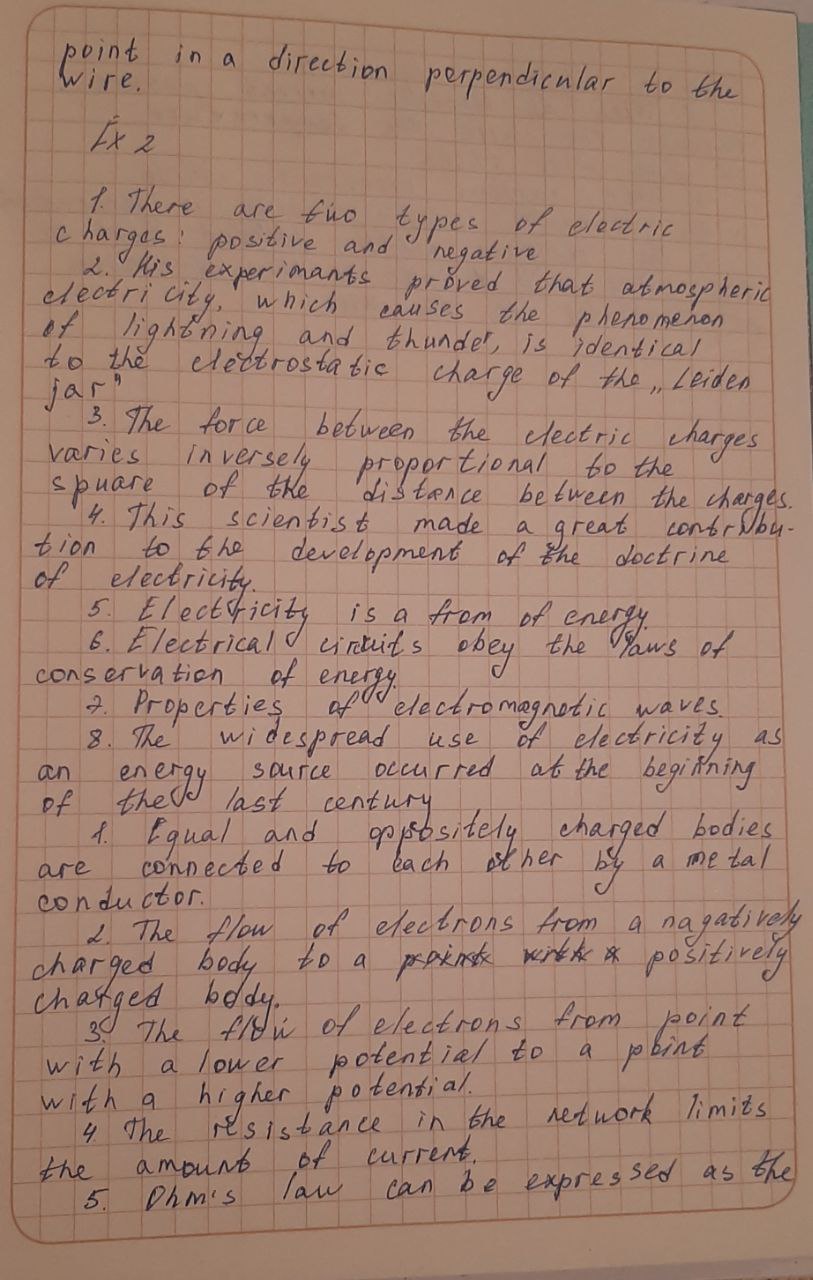 point in a direction perpendicular to the
wire.
Ex 2
1. There are two types of electric
charges: positive and negative
2. His experimants proved that atmospheric
electricity, which causes the phenomenon
of lightning and thunder, is identical
to the electrostatic charge of the „Leiden
jar"
3. The force between the electric charges
varies inversely proportional to the
spuare of the distance between the charges.
4. This scientist made a great contribu-
tion to the development of the doctrine
of electricity.
5. Electricity is a from of energy.
6. Electrical circuits obey the laws of
conservation of energy.
7. Properties of electromagnetic waves.
8. The widespread use of electricity as
an energy source occurred at the beginning
of the last century
1. Equal and oppositely charged bodies
are connected to each other by a metal
conductor.
2. The flow of electrons from a nagatively
charged body to a positively
charged body.
3. The flow of electrons from point
with a lower potential to a point
with a higher potential.
4 The resistance in the network limits
the amount of current.
5. Ohm's law can be expressed as the